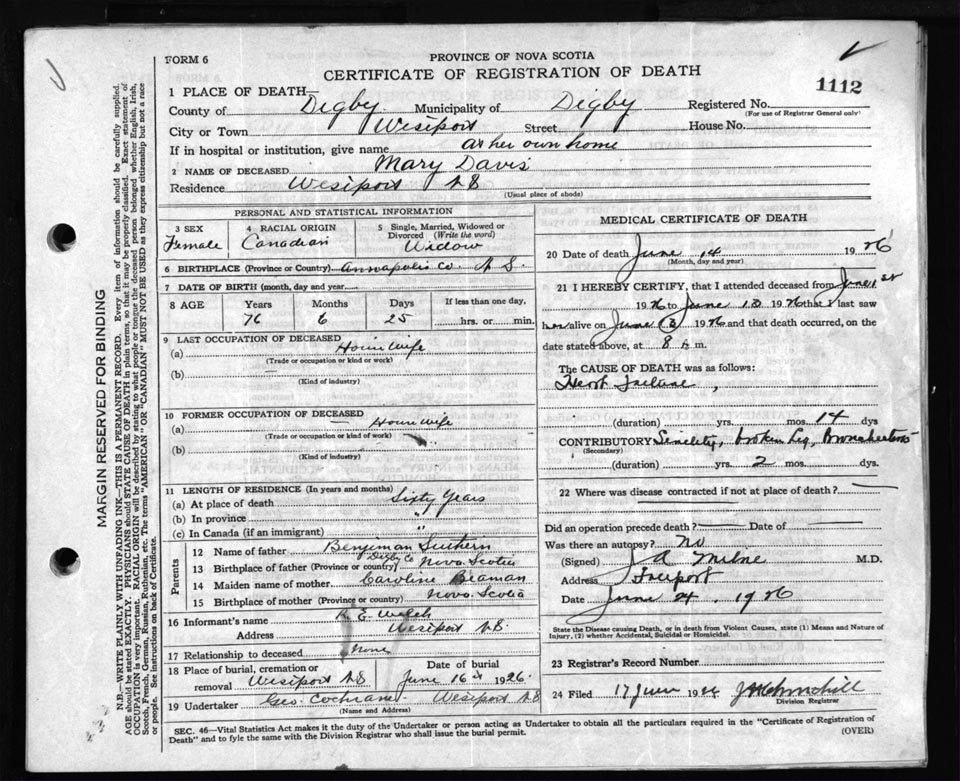 FORM 6
PROVINCE OF NOVA SCOTIA
CERTIFICATE OF REGISTRATION OF DEATH
1112
1 PLACE OF DEATH—
County of Digby Municipality of Digby Registered No.
(For use of Registrar General only)
City or Town Westport Street House No.
If in hospital or institution, give name at her own home
2 NAME OF DECEASED Mary Davis
Residence Westport N S
(Usual place of abode)
PERSONAL AND STATISTICAL INFORMATION
3 SEX 4 RACIAL ORIGIN 5 Single, Married, Widowed or Divorced (Write the word)
Female Canadian Widow
6 BIRTHPLACE (Province or Country) Annapolis Co. N S.
7 DATE OF BIRTH (month, day and year)
8 AGE Years Months Days If less than one day,
76 6 25 hrs. or min.
9 LAST OCCUPATION OF DECEASED
(a) House wife
(Trade or occupation or kind or work)
(b) —
(Kind of industry)
10 FORMER OCCUPATION OF DECEASED
(a) — House wife
(Trade or occupation or kind of work)
(b) "
(Kind of industry)
11 LENGTH OF RESIDENCE (In years and months)
(a) At place of death Sixty Years
(b) In province "
(c) In Canada (if an immigrant) "
Parents
12 Name of father Benjeman
13 Birthplace of father (Province or country) Digby Co Nova Scotia
14 Maiden name of mother Caroline Beaman
15 Birthplace of mother (Province or country) Nova Scotia
16 Informant's name E. Welch
Address Westport N S.
17 Relationship to deceased None
18 Place of burial, cremation or removal Westport N S Date of burial June 16 1926.
19 Undertaker Geo. Cochrane Westport N S
(Name and Address)
MEDICAL CERTIFICATE OF DEATH
20 Date of death June 14 1926
(Month, day and year)
21 I HEREBY CERTIFY, that I attended deceased from June 1st
1926 to June 13 1926 that I last saw
her alive on June 13 1926 and that death occurred, on
date stated above, at 8 m.
The CAUSE OF DEATH was as follows:
Heart Failure,
(duration) yrs. mos. 14 dys
CONTRIBUTORY Senility, broken Leg,
(Secondary)
(duration) yrs. 2 mos. dys.
22 Where was disease contracted if not at place of death? —
Did an operation precede death? — Date of —
Was there an autopsy? No
(Signed) A Milne M.D.
Address Freeport
Date June 1926
State the Disease causing Death, or in death from Violent Causes, state (1) Means and Nature of Injury, (2) whether Accidental, Suicidal or Homicidal.
23 Registrar's Record Number
24 Filed 17 June 1926
Division Registrar
SEC. 46—Vital Statistics Act makes it the duty of the Undertaker or person acting as Undertaker to obtain all the particulars required in the "Certificate of Registration of
Death" and to fyle the same with the Division Registrar who shall issue the burial permit.
(OVER)
MARGIN RESERVED FOR BINDING
N.B.—WRITE PLAINLY WITH UNFADING INK—THIS IS A PERMANENT RECORD. Every item of information should be carefully supplied.
AGE should be stated EXACTLY. PHYSICIANS should STATE CAUSE OF DEATH in plain terms, so that it may be properly classified. Exact statement of
OCCUPATION is very important. RACIAL ORIGIN will be described by stating to what people or tongue the deceased person belonged whether English, Irish,
Scotch, French, German, Russian, Ruthenian, etc. The terms "AMERICAN" OR "CANADIAN" MUST NOT BE USED as they express citizenship but not a race
or people. See instructions on back of Certificate.